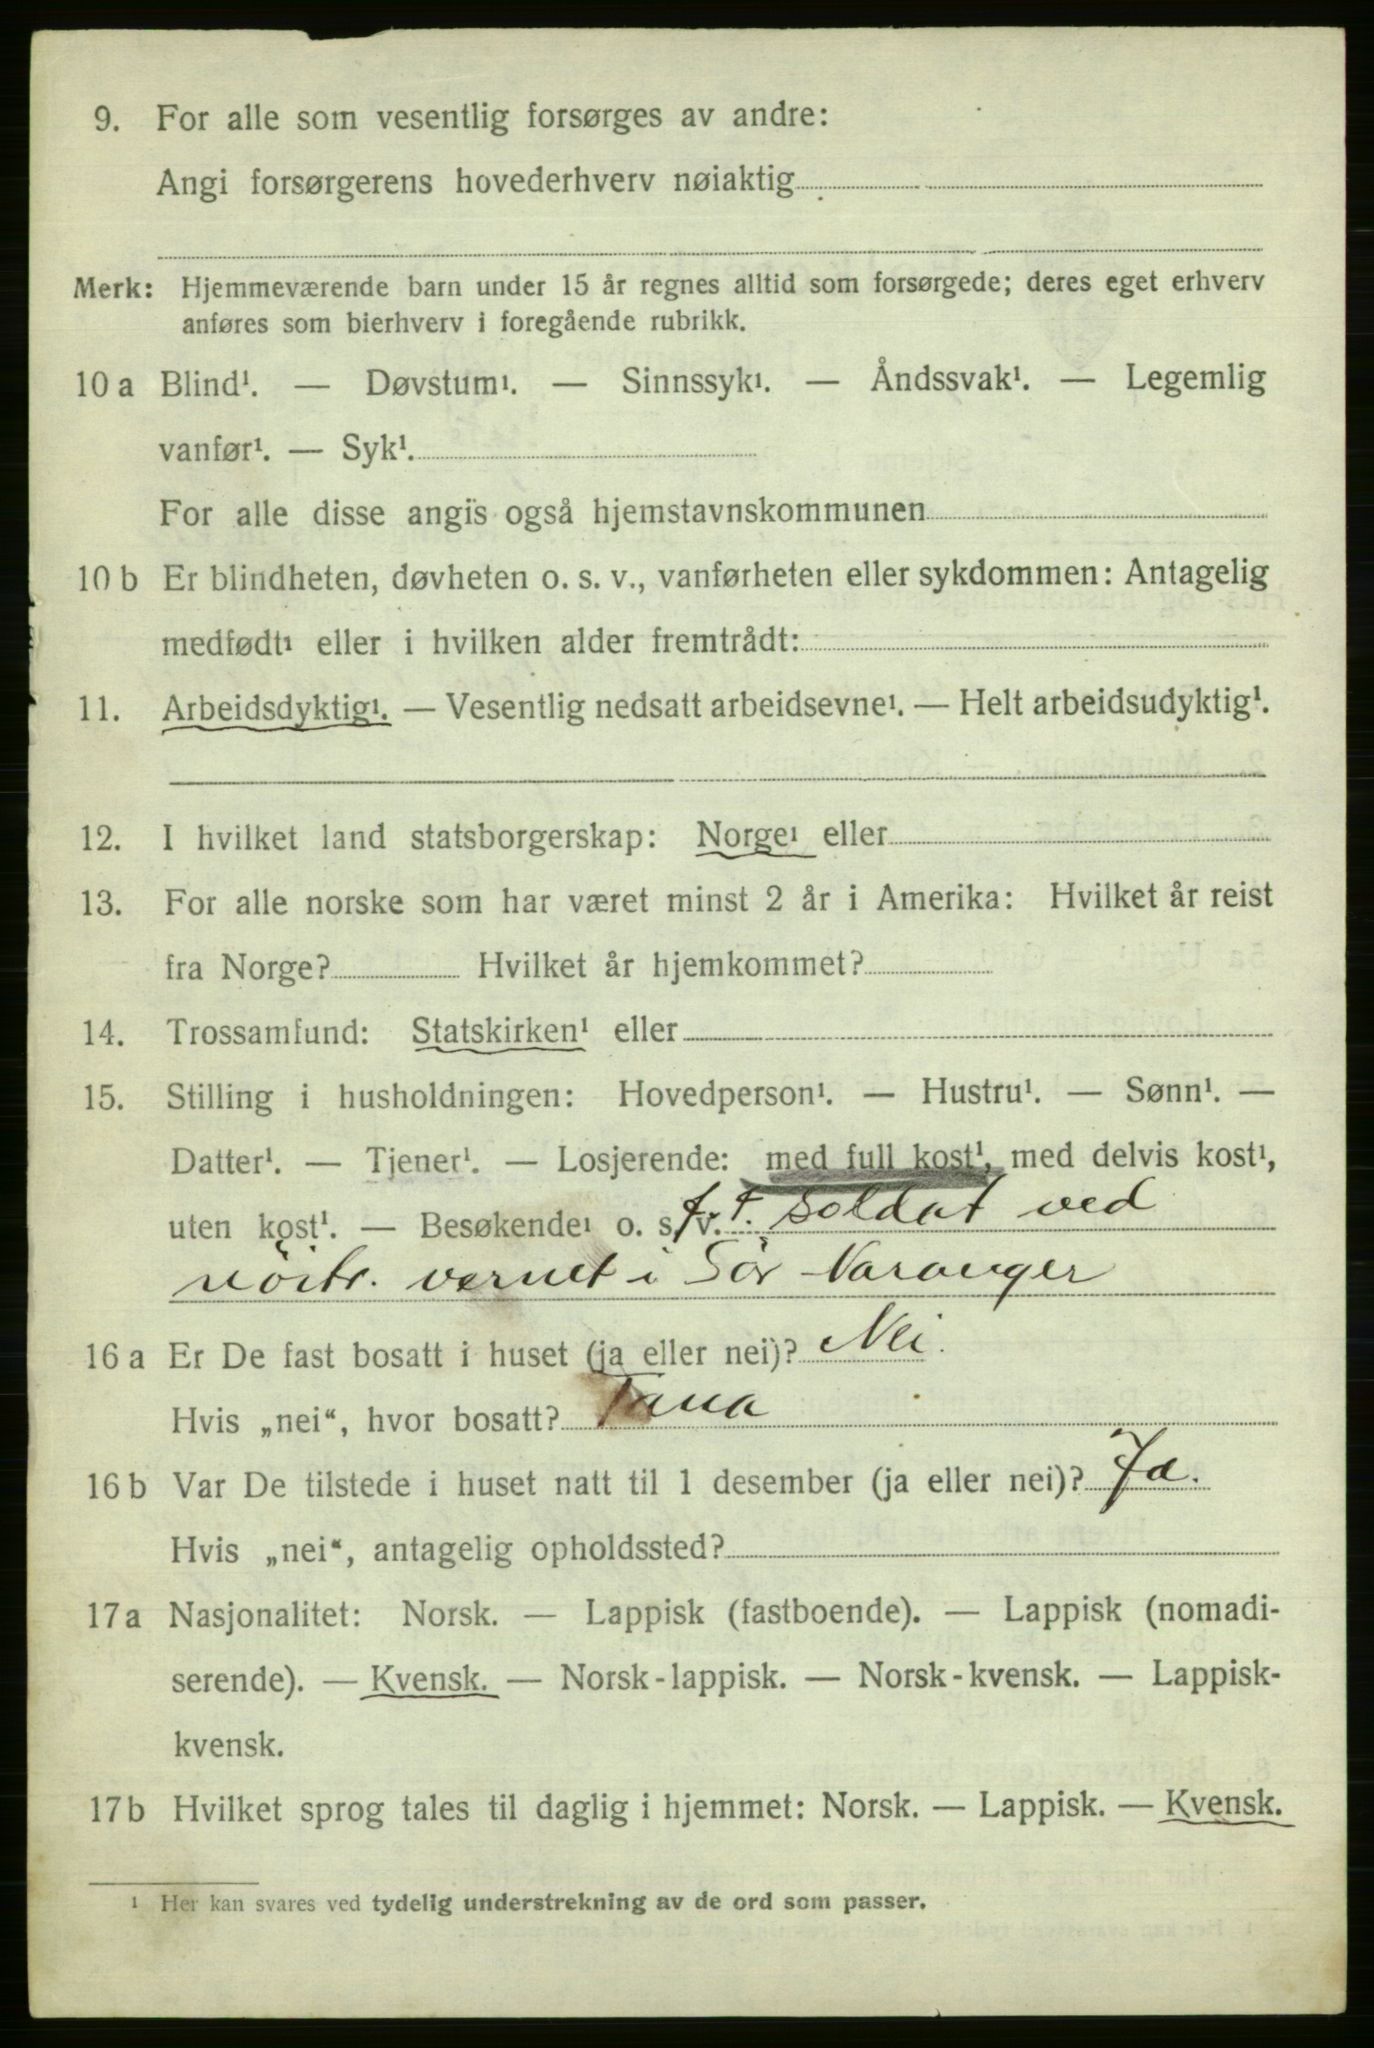 9. For alle som vesentlig forsørges av andre:
Angi forsørgerens hovederhverv nøiaktig
Merk: Hjemmeværende barn under 15 år regnes alltid som forsørgede; deres eget erhverv
anføres som bierhverv i foregående rubrikk.
10 a Blind¹. — Døvstum¹. — Sinnssyk¹. — Åndssvak¹. — Legemlig
vanfør¹. — Syk¹.
For alle disse angis også hjemstavnskommunen
10 b Er blindheten, døvheten o. s. v., vanførheten eller sykdommen: Antagelig
medfødt¹ eller i hvilken alder fremtrådt:
11. Arbeidsdyktig¹. — Vesentlig nedsatt arbeidsevne¹. — Helt arbeidsudyktig¹.
12. I hvilket land statsborgerskap: Norge¹ eller
13. For alle norske som har været minst 2 år i Amerika: Hvilket år reist
fra Norge? Hvilket år hjemkommet?
14. Trossamfund: Statskirken¹ eller
15. Stilling i husholdningen: Hovedperson¹. — Hustru¹. — Sønn¹. —
Datter¹. — Tjener¹. — Losjerende: med full kost¹, med delvis kost¹,
uten kost¹. — Besøkende¹ o. s. v. f. t. soldat ved
nöitr. vernet i Sör Varanger
16 a Er De fast bosatt i huset (ja eller nei)? Nei.
Hvis „nei“, hvor bosatt? Tana
16 b Var De tilstede i huset natt til 1 desember (ja eller nei)? Ja.
Hvis „nei“, antagelig opholdssted?
17 a Nasjonalitet: Norsk. — Lappisk (fastboende). — Lappisk (nomadi-
serende). — Kvensk. — Norsk-lappisk. — Norsk-kvensk. — Lappisk-
kvensk.
17 b Hvilket sprog tales til daglig i hjemmet: Norsk. — Lappisk. — Kvensk.
¹ Her kan svares ved tydelig understrekning av de ord som passer.